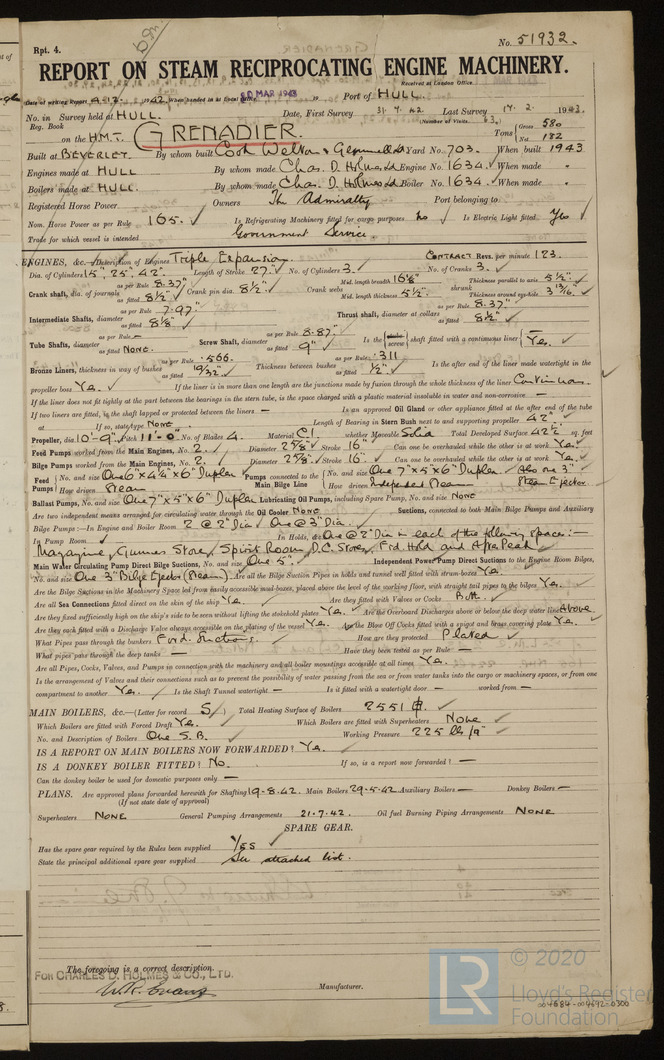 Rpt. 4.
No. 51932.
REPORT ON STEAM RECIPROCATING ENGINE MACHINERY.
Received at London Office
Date of writing Report 4.12. 1942 When handed in at Local Office 19 Port of HULL.
MAR 1943
No. in Survey held at HULL. Date, First Survey 31.7.42 Last Survey 17.2.1943.
Reg. Book (Number of Visits 63.)
on the H.M.T. GRENADIER. Tons Gross 580 Net 182
Built at BEVERLEY. By whom built Cook Welton & Gemmell Ld Yard No. 703. When built 1943
Engines made at HULL By whom made Chas. D. Holmes Ld Engine No. 1634. When made "
Boilers made at HULL. By whom made Chas. D. Holmes Ld Boiler No. 1634. When made "
Registered Horse Power Owners The Admiralty Port belonging to
Nom. Horse Power as per Rule 165. Is Refrigerating Machinery fitted for cargo purposes No Is Electric Light fitted Yes
Trade for which vessel is intended Government Service.
ENGINES, &c. Description of Engines Triple Expansion CONTRACT Revs. per minute 123.
Dia. of Cylinders 15", 25", 42" Length of Stroke 27" No. of Cylinders 3. No. of Cranks 3.
Crank shaft, dia. of journals as per Rule 8.37" as fitted 8½" Crank pin dia. 8½" Crank webs Mid. length breadth 16½" Mid. length thickness 5½" shrunk Thickness parallel to axis 5½" Thickness around eye-hole 3 13/16"
Intermediate Shafts, diameter as per Rule 7.97" as fitted 8⅛" Thrust shaft, diameter at collars as per Rule 8.37" as fitted 8½"
Tube Shafts, diameter as per Rule — as fitted NONE. Screw Shaft, diameter as per Rule 8.87" as fitted 9" Is the tube screw shaft fitted with a continuous liner — Yes.
Bronze Liners, thickness in way of bushes as per Rule .566 as fitted 19/32" Thickness between bushes as per Rule .311 as fitted ½" Is the after end of the liner made watertight in the
propeller boss Yes. If the liner is in more than one length are the junctions made by fusion through the whole thickness of the liner Continuous
If the liner does not fit tightly at the part between the bearings in the stern tube, is the space charged with a plastic material insoluble in water and non-corrosive —
If two liners are fitted, is the shaft lapped or protected between the liners — Is an approved Oil Gland or other appliance fitted at the after end of the tube
If so, state type None Length of Bearing in Stern Bush next to and supporting propeller 42"
Propeller, dia 10'-9" Pitch 11'-0" No. of Blades 4. Material C.I. whether Moveable Solid Total Developed Surface 42½ sq. feet
Feed Pumps worked from the Main Engines, No. 2. Diameter 2⅝" Stroke 16" Can one be overhauled while the other is at work Yes
Bilge Pumps worked from the Main Engines, No. 2. Diameter 2⅝" Stroke 16" Can one be overhauled while the other is at work Yes
Feed Pumps No. and size One 6"x4¼"x6" Duplex Pumps connected to the Main Bilge Line No. and size One 7"x5"x6" Duplex Also one 3"
How driven Steam How driven Independent Steam Steam Ejector
Ballast Pumps, No. and size One 7"x5"x6" Duplex Lubricating Oil Pumps, including Spare Pump, No. and size NONE
Are two independent means arranged for circulating water through the Oil Cooler NONE Suctions, connected to both Main Bilge Pumps and Auxiliary
Bilge Pumps:—In Engine and Boiler Room 2 @ 2" Dia. One @ 3" Dia.
In Pump Room In Holds, &c. One @ 2" Dia in each of the following spaces:—
Magazine, Gunners Store, Spirit Room, D.C. Store, Ford Hold and After Peak
Main Water Circulating Pump Direct Bilge Suctions, No. and size One 5". Independent Power Pump Direct Suctions to the Engine Room Bilges,
No. and size One 3" Bilge Ejector (Steam) Are all the Bilge Suction Pipes in holds and tunnel well fitted with strum-boxes Yes.
Are the Bilge Suctions in the Machinery Space led from easily accessible mud-boxes, placed above the level of the working floor, with straight tail pipes to the bilges Yes.
Are all Sea Connections fitted direct on the skin of the ship Yes Are they fitted with Valves or Cocks Both
Are they fixed sufficiently high on the ship's side to be seen without lifting the stokehold plates Yes. Are the Overboard Discharges above or below the deep water line Above
Are they each fitted with a Discharge Valve always accessible on the plating of the vessel Yes. Are the Blow Off Cocks fitted with a spigot and brass covering plate Yes.
What Pipes pass through the bunkers Ford. Suctions. How are they protected Plated
What pipes pass through the deep tanks — Have they been tested as per Rule —
Are all Pipes, Cocks, Valves, and Pumps in connection with the machinery and all boiler mountings accessible at all times Yes.
Is the arrangement of Valves and their connections such as to prevent the possibility of water passing from the sea or from water tanks into the cargo or machinery spaces, or from one
compartment to another Yes. Is the Shaft Tunnel watertight — Is it fitted with a watertight door — worked from —
MAIN BOILERS, &c.—(Letter for record S.) Total Heating Surface of Boilers 2551
Which Boilers are fitted with Forced Draft Yes. Which Boilers are fitted with Superheaters None
No. and Description of Boilers One S.B. Working Pressure 225 lbs/□"
IS A REPORT ON MAIN BOILERS NOW FORWARDED? Yes.
IS A DONKEY BOILER FITTED? No. If so, is a report now forwarded? —
Can the donkey boiler be used for domestic purposes only —
PLANS. Are approved plans forwarded herewith for Shafting 19-8-42. Main Boilers 29-5-42 Auxiliary Boilers — Donkey Boilers —
(If not state date of approval)
Superheaters NONE General Pumping Arrangements 21-7-42. Oil fuel Burning Piping Arrangements NONE
SPARE GEAR.
Has the spare gear required by the Rules been supplied YES
State the principal additional spare gear supplied See attached list.
The foregoing is a correct description,
FOR CHARLES D. HOLMES & CO., LTD.
W.R. Evans Manufacturer.
© 2020
LR
Lloyd's Register
Foundation
004684-004692-0300